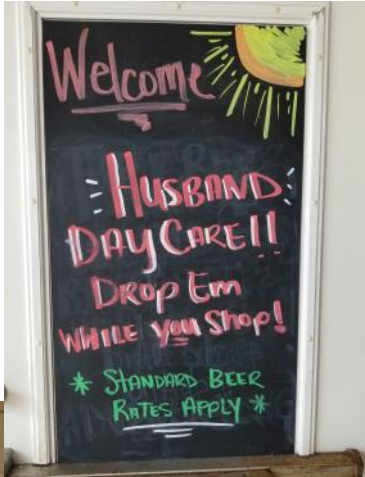 Welcome
HUSBAND
DAY CARE!!
DROP Em
WHILE you SHOP!
* STANDARD BEER
RATES APPLY *